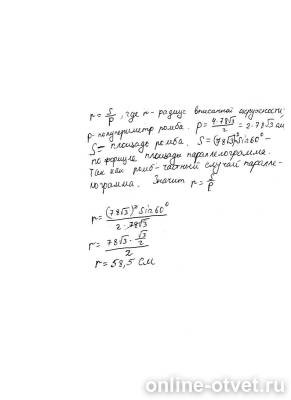 r = S/p, где r - радиус вписанной окружности
p - полупериметр ромба. p = 4·78√3/2 = 2·78√3 см
S - площадь ромба. S = (78√3)² Sin60° -
по формуле площади параллелограмма.
Так как ромб - частный случай паралле-
лограмма. Значит r = S/p
r = (78√3)² Sin60°/2·78√3
r = 78√3 · √3/2/2
r = 58,5 см
online-otvet.ru